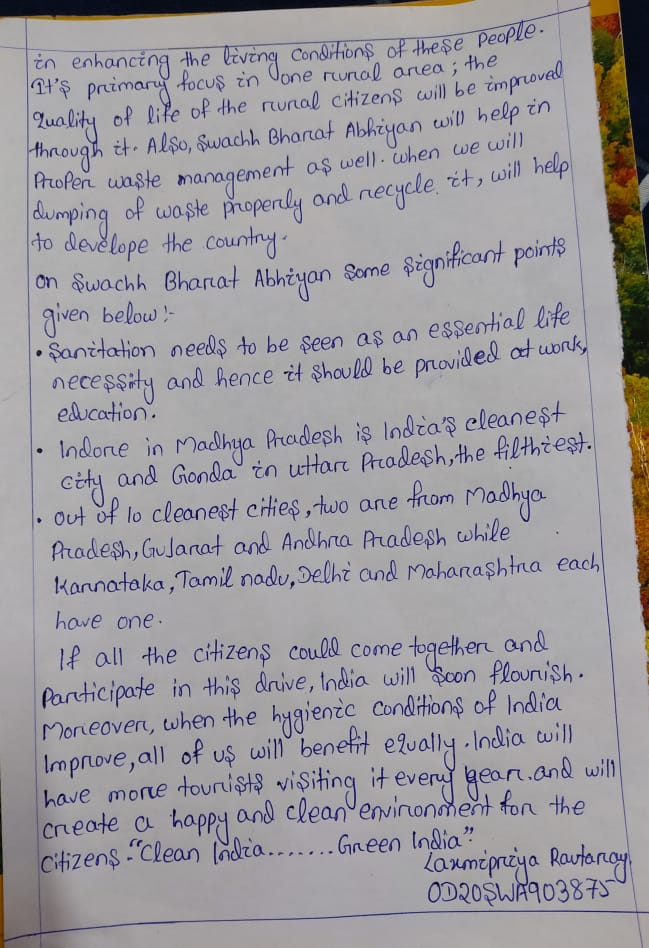 in enhancing the living conditions of these people.
It's primary focus in one rural area; the
quality of life of the rural citizens will be improved
through it. Also, Swachh Bharat Abhiyan will help in
Proper waste management as well. when we will
dumping of waste properly and recycle it, will help
to develope the country.
on Swachh Bharat Abhiyan some significant points
given below :-
• Sanitation needs to be seen as an essential life
necessity and hence it should be provided at work,
education.
• Indore in Madhya Pradesh is India's cleanest
city and Gonda in uttar Pradesh, the filthiest.
• out of 10 cleanest cities, two are from Madhya
Pradesh, Gujarat and Andhra Pradesh while
Karnataka, Tamil nadu, Delhi and Maharashtra each
have one.
If all the citizens could come together and
Participate in this drive, India will soon flourish.
Moreover, when the hygienic conditions of India
Improve, all of us will benefit equally. India will
have more tourists visiting it every year. and will
create a happy and clean environment for the
citizens. "Clean India.......Green India"
Laxmipriya Rautaray
OD20SWA903875